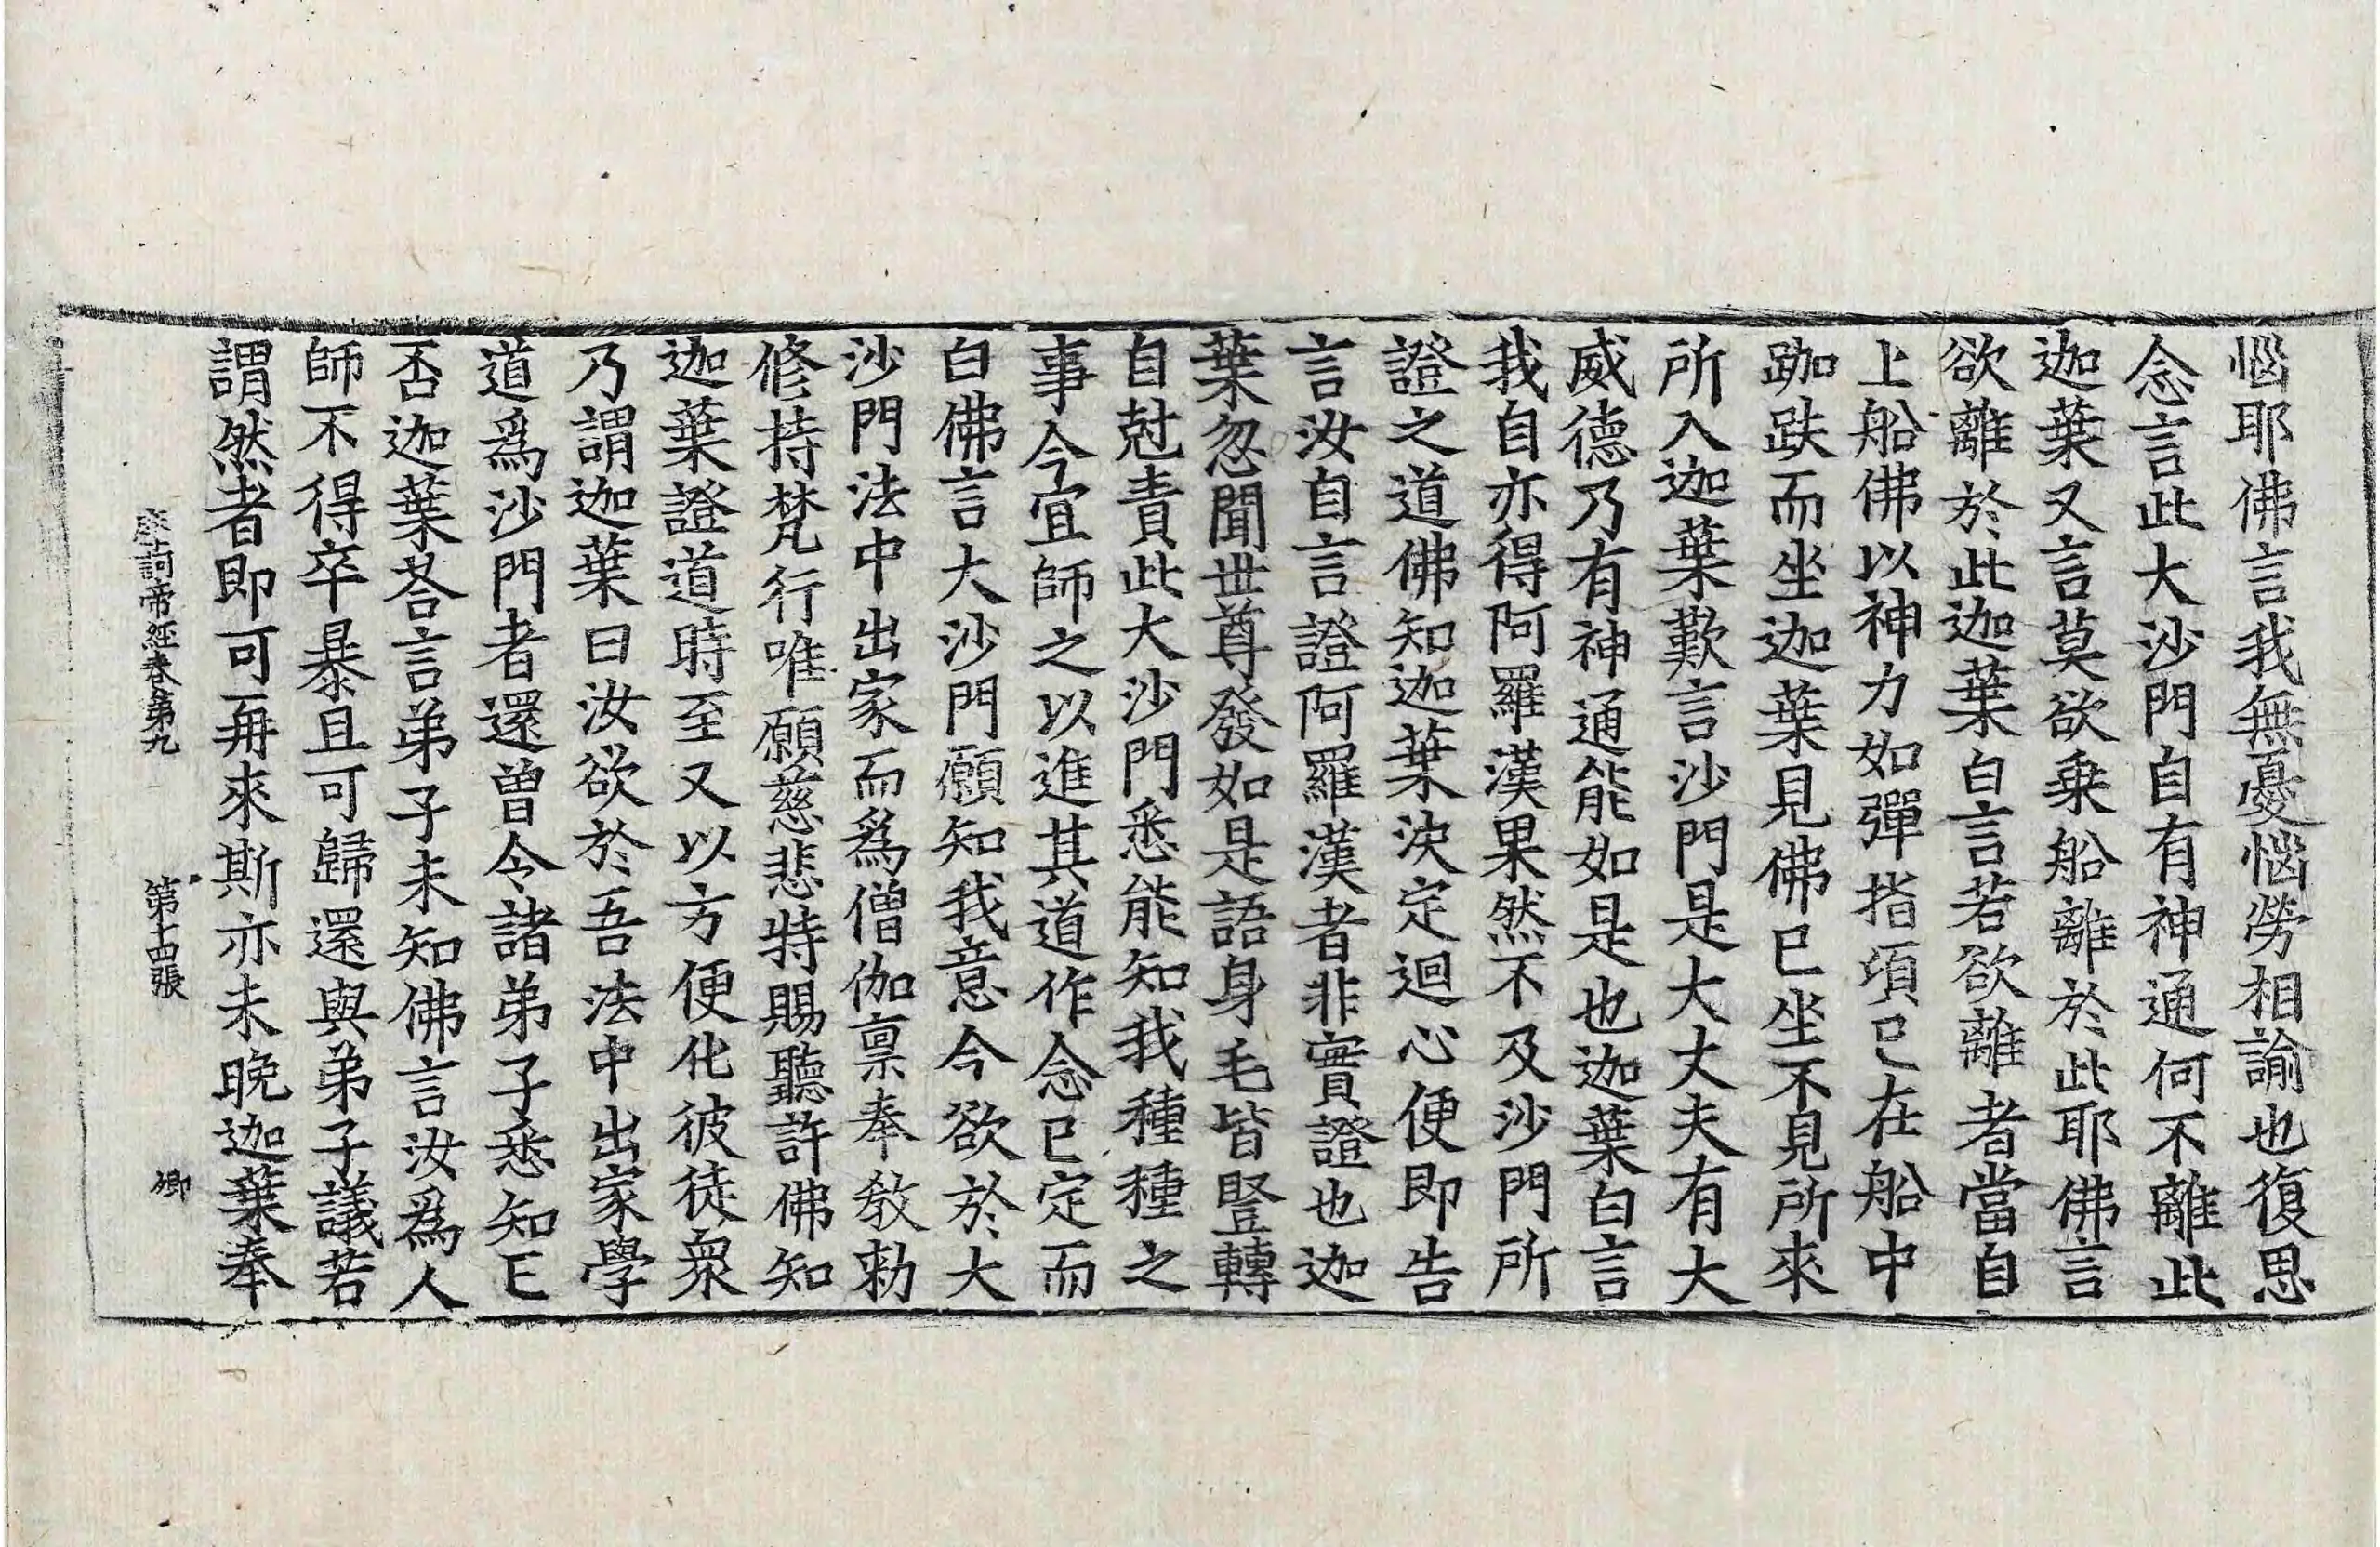 惱耶佛言我無憂惱勞相諭也復思
念言此大沙門自有神通何不離此
迦葉又言莫欲乗船離於此耶佛言
欲離於此迦葉白言若欲離者當自
上船佛以神力如彈指項已在船中
跏趺而坐迦葉見佛已坐不見所來
所入迦葉歎言沙門是大丈夫有大
威德乃有神通能如是也迦葉白言
我自亦得阿羅漢果然不及沙門所
證之道佛知迦葉決定迴心便即告
言汝自言證阿羅漢者非實證也迦
葉忽聞世尊發如是語身毛皆竪轉
自尅責此大沙門悉能知我種種之
事今宜師之以進其道作念已定而
白佛言大沙門願知我意今欲於大
沙門法中出家而為僧伽禀奉敎勑
修持梵行唯願慈悲特賜聽許佛知
迦葉證道時至又以方便化彼徒衆
乃謂迦葉曰汝欲於吾法中出家學
道爲沙門者還曾令諸弟子悉知已
否迦葉荅言弟子未知佛言汝爲人
師不得卒暴且可歸還與弟子議若
謂然者即可再來斯亦未晚迦葉奉
摩訶帝經卷第九 第十四張 卿